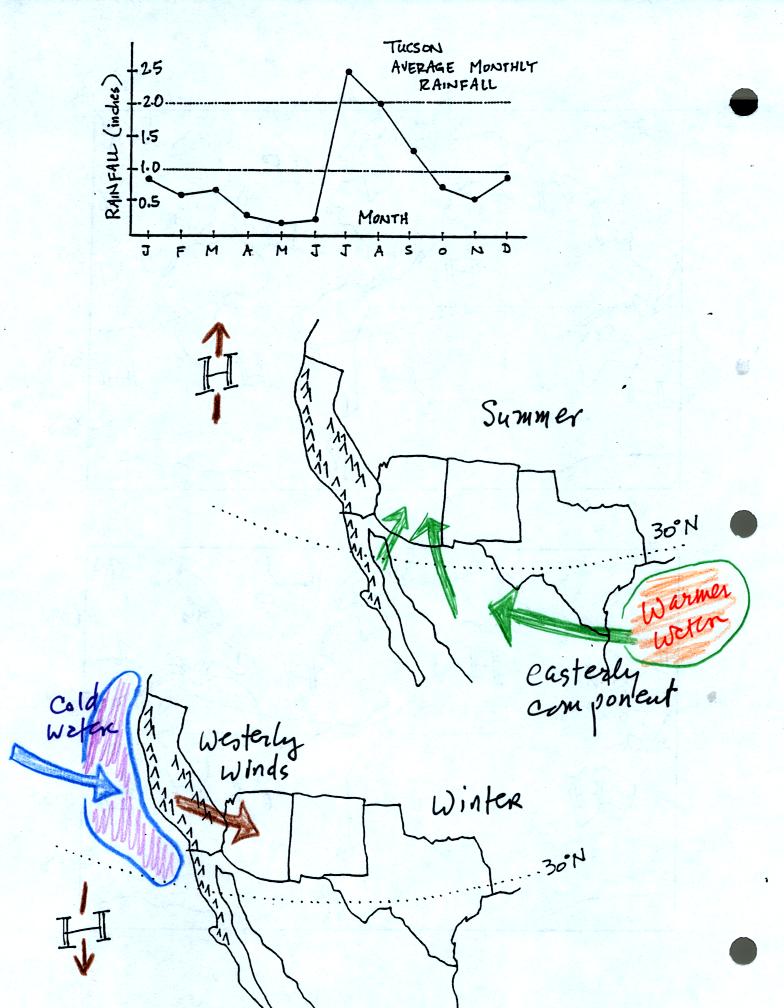 TUCSON
AVERAGE MONTHLY
RAINFALL
RAINFALL (inches)
2.5
2.0
1.5
1.0
0.5
MONTH
J F M A M J J A S O N D
H
Summer
30°N
Warmer
Water
easterly
component
Cold
Water
Westerly
Winds
Winter
30°N
H